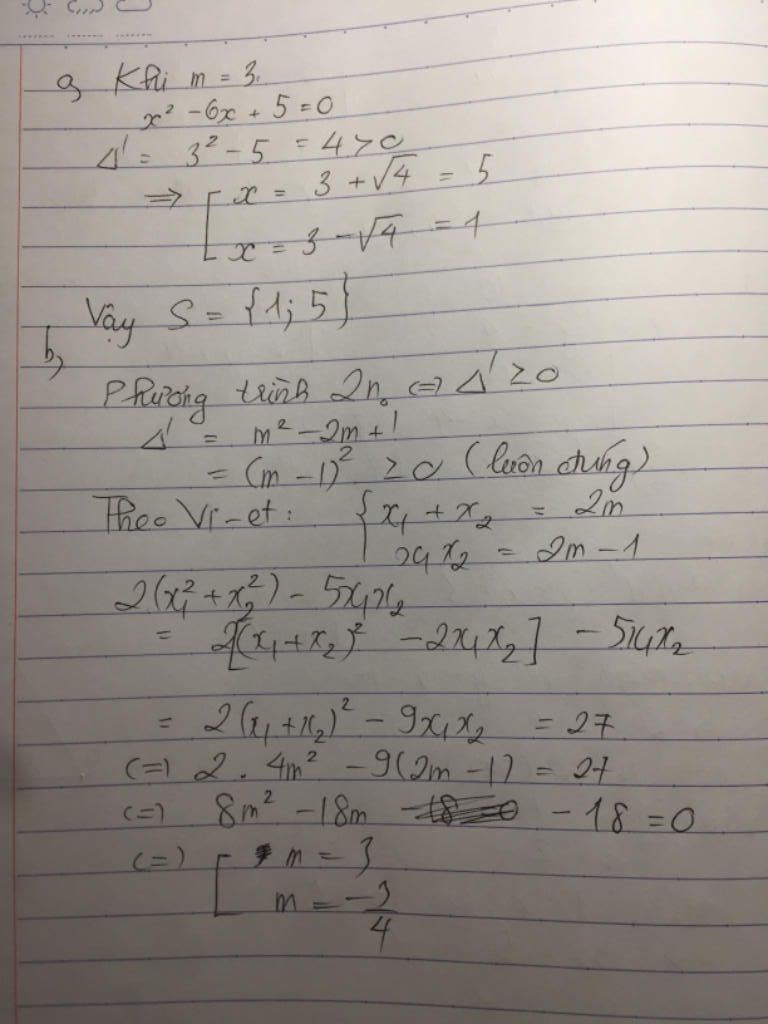 a, Khi m = 3.
x² - 6x + 5 = 0
Δ' = 3² - 5 = 4 > 0
⇒ [ x = 3 + √4 = 5
x = 3 - √4 = 1
Vậy S = {1; 5}
b,
Phương trình 2n₀ ⇔ Δ' ≥ 0
Δ' = m² - 2m + 1
= (m - 1)² ≥ 0 (luôn đúng)
Theo Vi-et: { x₁ + x₂ = 2m
x₁x₂ = 2m - 1
2(x₁² + x₂²) - 5x₁x₂
= 2[(x₁ + x₂)² - 2x₁x₂] - 5x₁x₂
= 2(x₁ + x₂)² - 9x₁x₂ = 27
(=) 2 . 4m² - 9(2m - 1) = 27
(=) 8m² - 18m - 18 = 0
(=) [ m = 3
m = -3/4